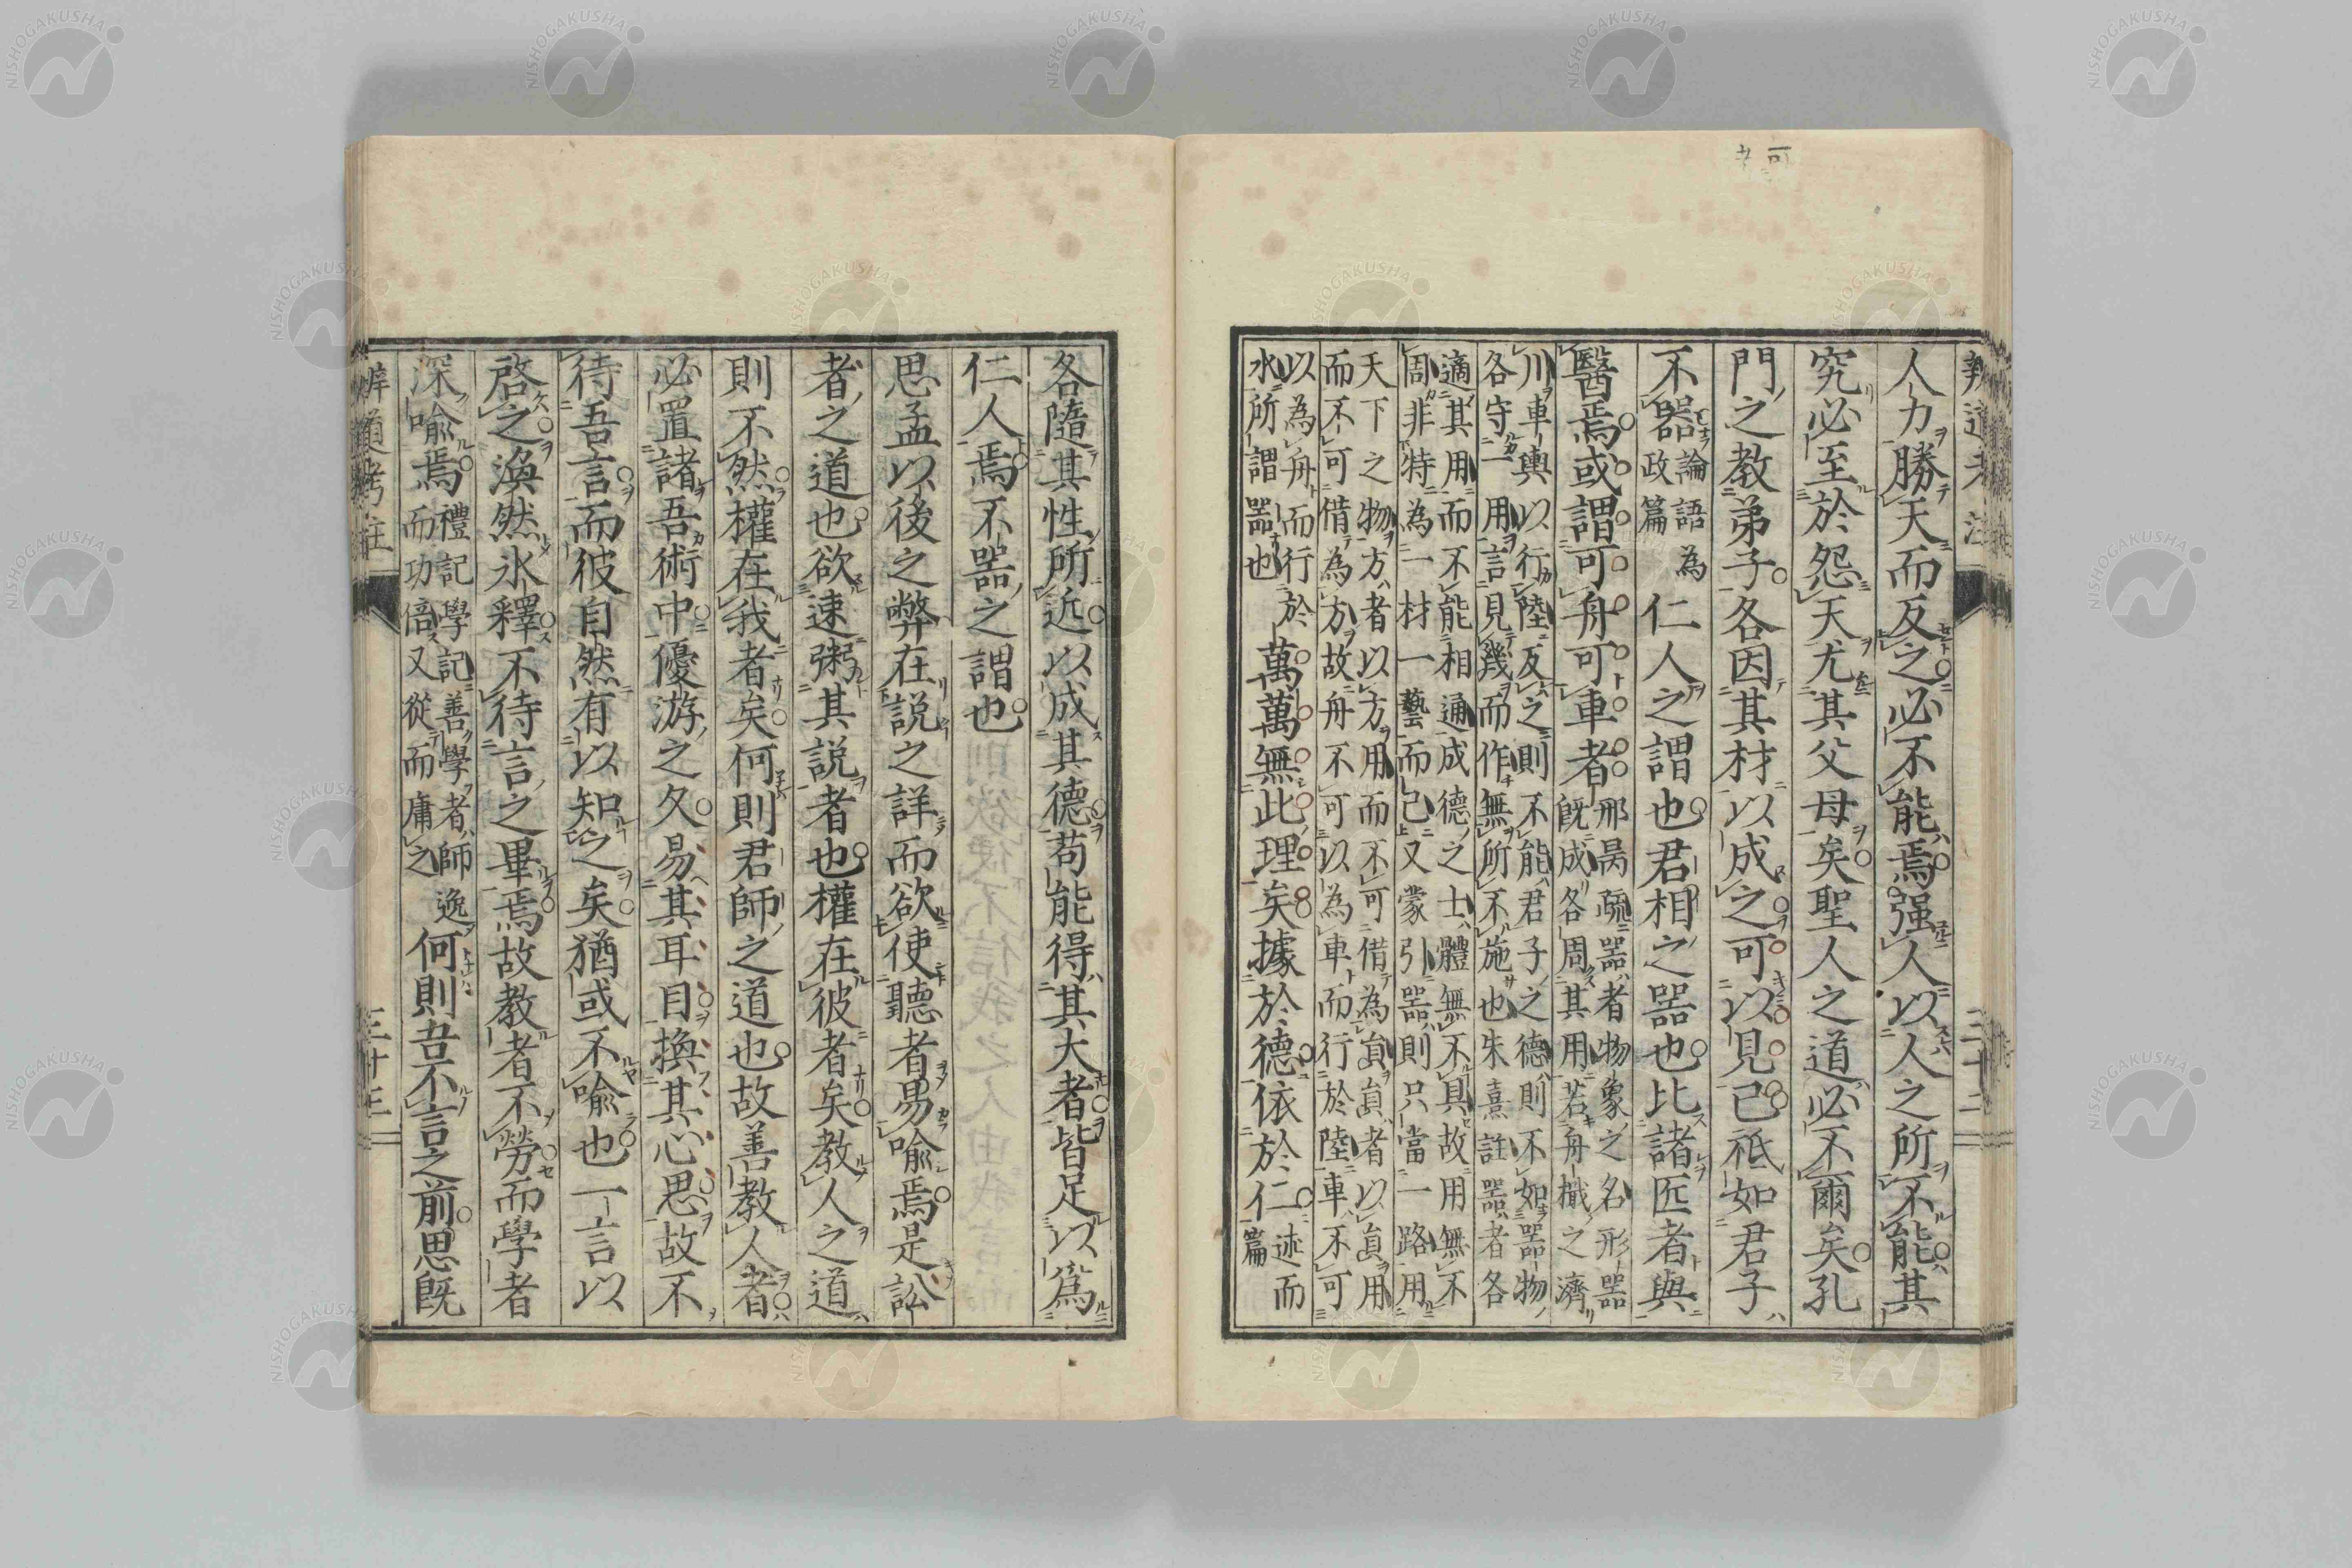 可
考
人力勝天而反之必不能焉强人以人之所不能其
究必至於怨天尤其父母矣聖人之道必不爾矣孔
門之教弟子各因其材以成之可以見已祇如君子
不器論語為政篇為仁人之謂也君相之器也比諸匠者與
醫焉或謂可舟可車者邢昺疏器者物象之名形器既成各周其用若舟檝之濟
川車輿以行陸反之則不能君子之德則不如器物各守一用言見幾而作無所不施也朱熹註器者各
適其用而不能相通成德之士體無不具故用無不周非特為一材一藝而已又蒙引器則只當一路用
天下之物方者以方用而不可借為員員者以員用而不可借為方故舟不可以為車而行於陸車不可
以為舟而行於水所謂器也萬萬無此理矣據於德依於仁述而篇
各隨其性所近以成其德苟能得其大者皆足以為
仁人焉不器之謂也
思孟以後之弊在說之詳而欲使聽者易喩焉是訟
者之道也欲速粥其說者也權在彼者矣教人之道
則不然權在我者矣何則君師之道也故善教人者
必置諸吾術中優游之久易其耳目換其心思故不
待吾言而彼自然有以知之矣猶或不喩也一言以
啓之渙然氷釋不待言之畢焉故教者不勞而學者
深喩焉禮記學記善學者師逸而功倍又從而庸之何則吾不言之前思既
辨道考註
三十三